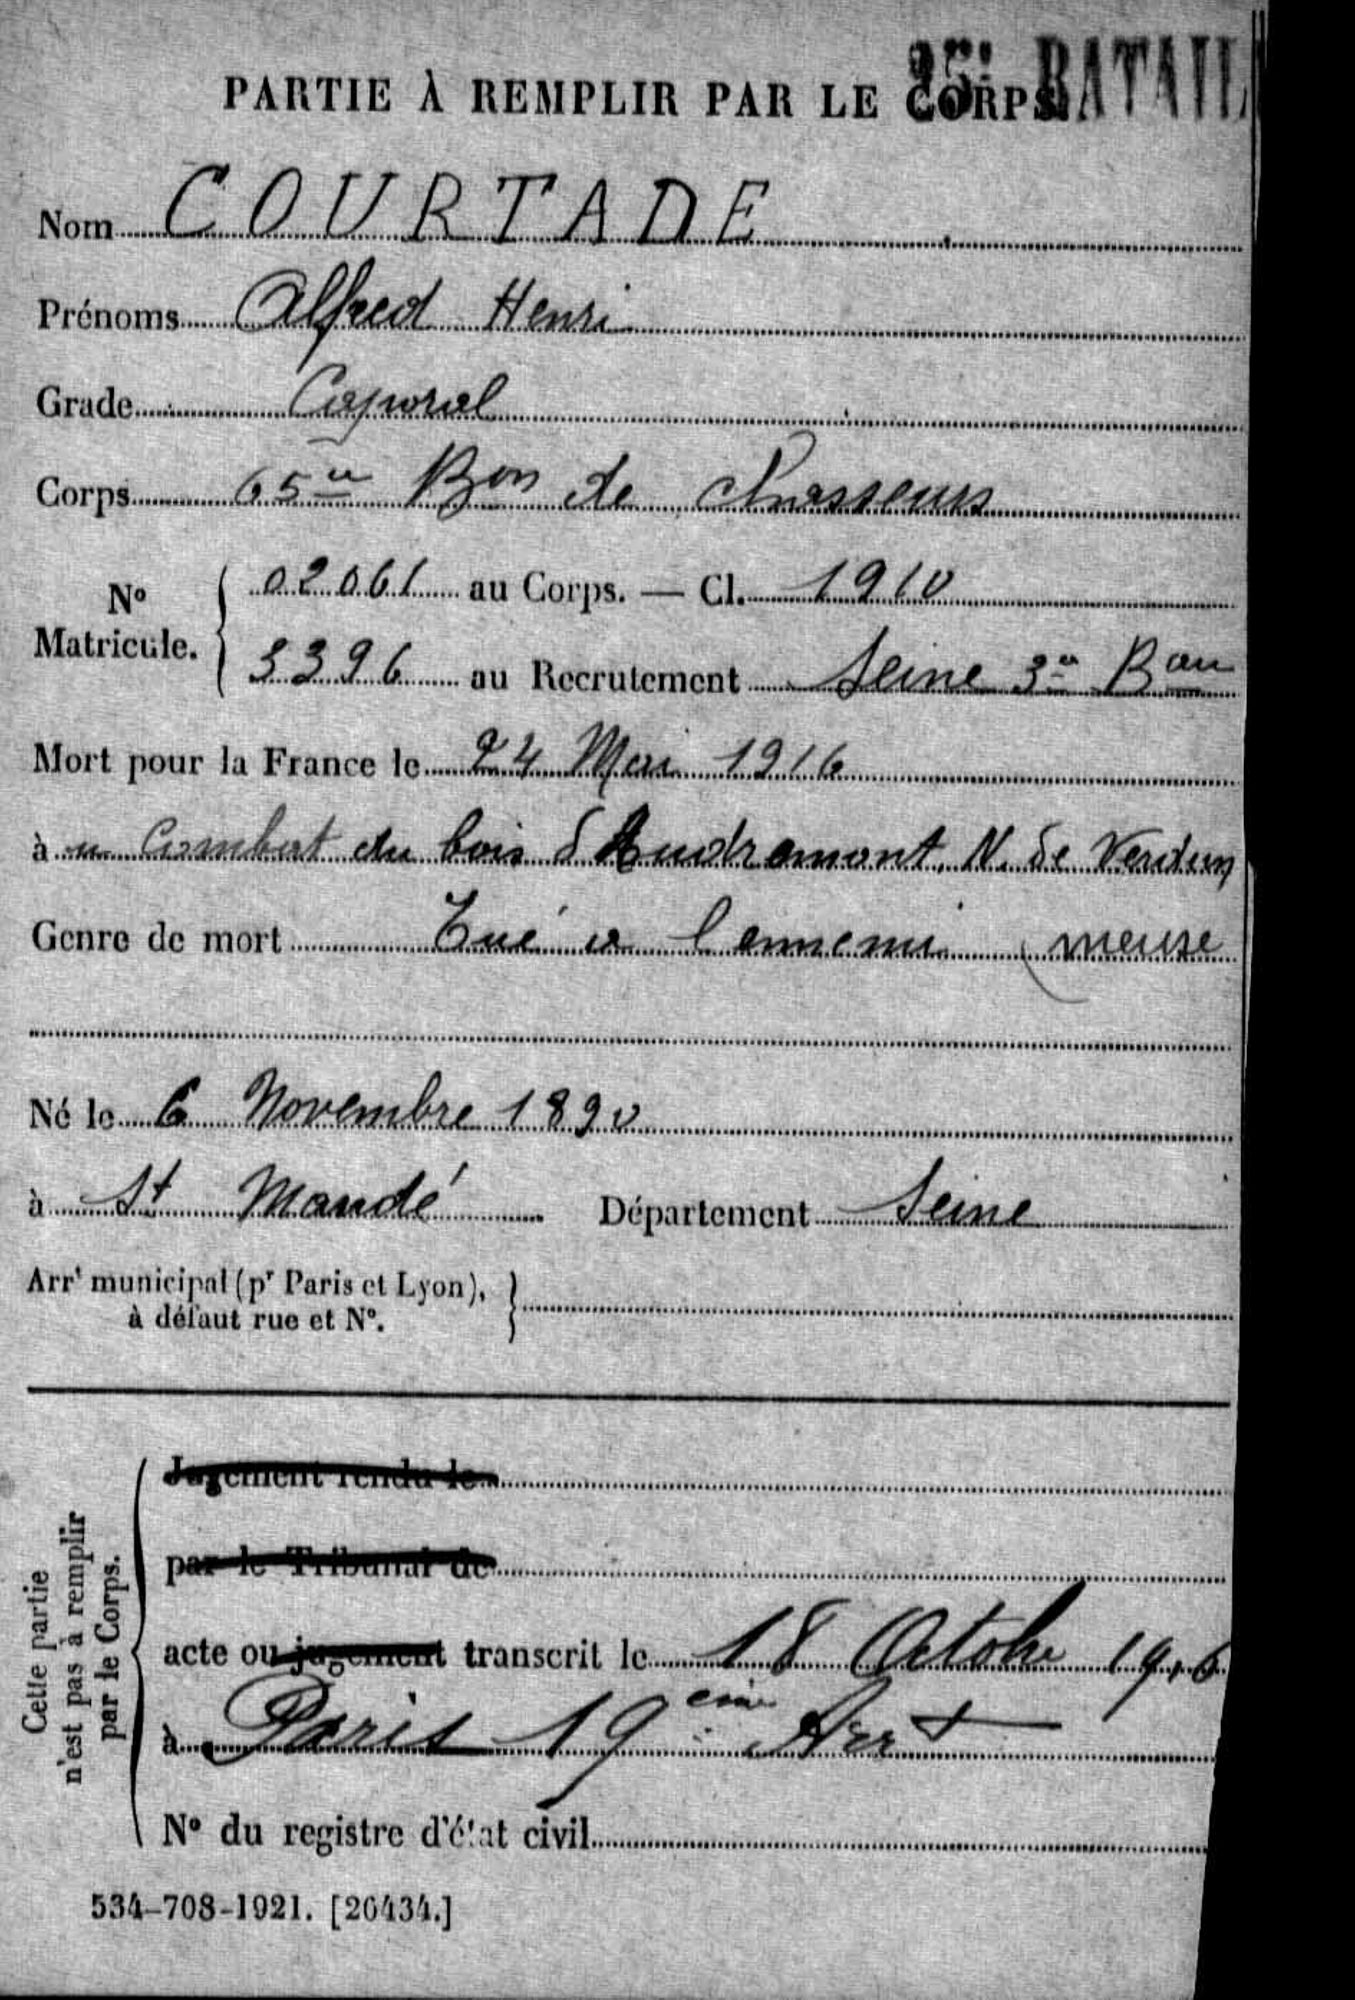 25e BATAIL
PARTIE À REMPLIR PAR LE CORPS.
Nom COURTADE
Prénoms Alfred Henri
Grade Caporal
Corps 65e Bon de chasseurs
No Matricule. { 02061 au Corps. — Cl. 1910
3396 au Recrutement Seine 3e Bau
Mort pour la France le 24 Mai 1916
à u Combat du bois d'Haudromont, N. de Verdun
Genre de mort Tué à l'ennemi (meuse
Né le 6 Novembre 1890
à St Mandé Département Seine
Arrt municipal (pr Paris et Lyon), }
à défaut rue et No.
Cette partie
n'est pas à remplir
par le Corps.
Jugement rendu le
par le Tribunal de
acte ou jugement transcrit le 18 Octobre 1916
à Paris 19eme Arrt
No du registre d'état civil
534-708-1921. [26434.]